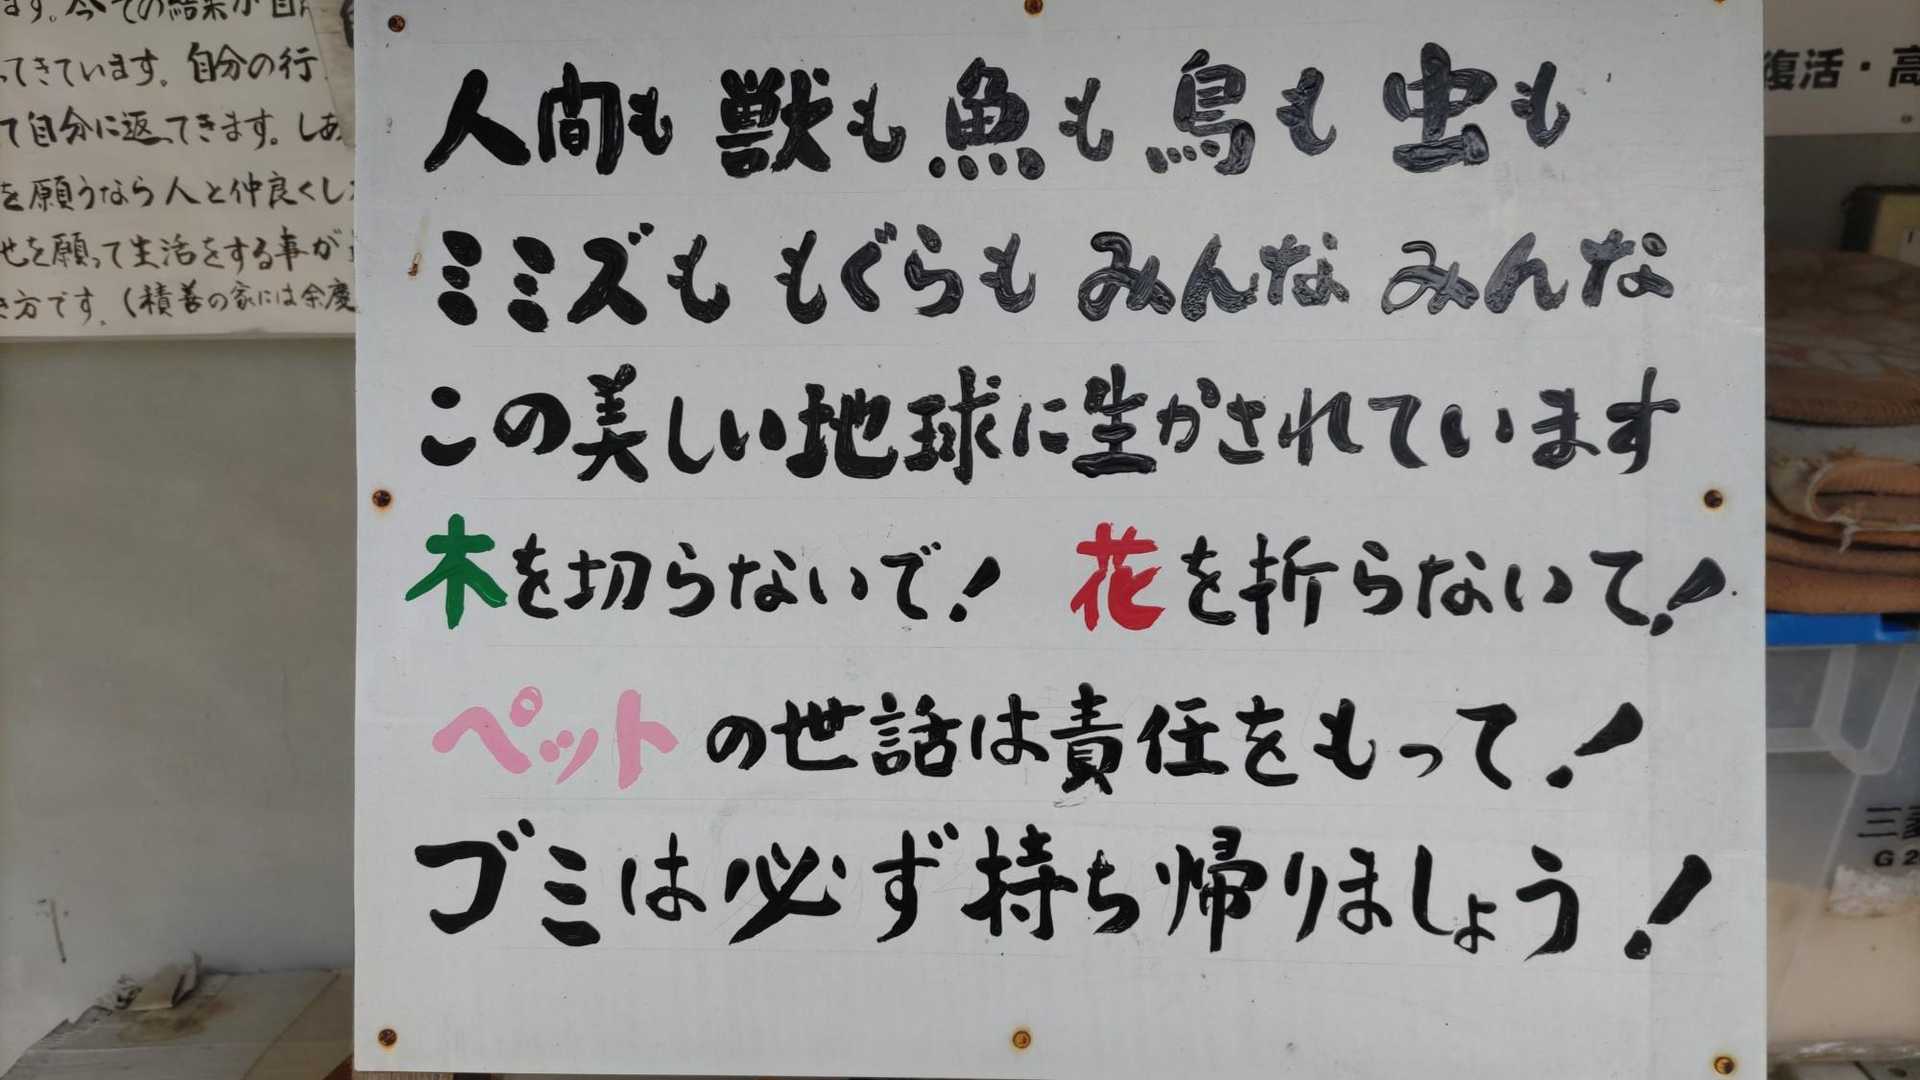 ます。今ての結果が自
ってきています。自分の行
て自分に返ってきます。しあ
を願うなら人と仲良くし
せを願って生活をする事が
き方です。(積善の家には余慶
人間も 獣も 魚も 鳥も 虫も
ミミズも もぐらも みんな みんな
この美しい地球に生かされています
木を切らないで! 花を折らないで!
ペットの世話は責任をもって!
ゴミは必ず持ち帰りましょう!
復活・高
三菱
G 2